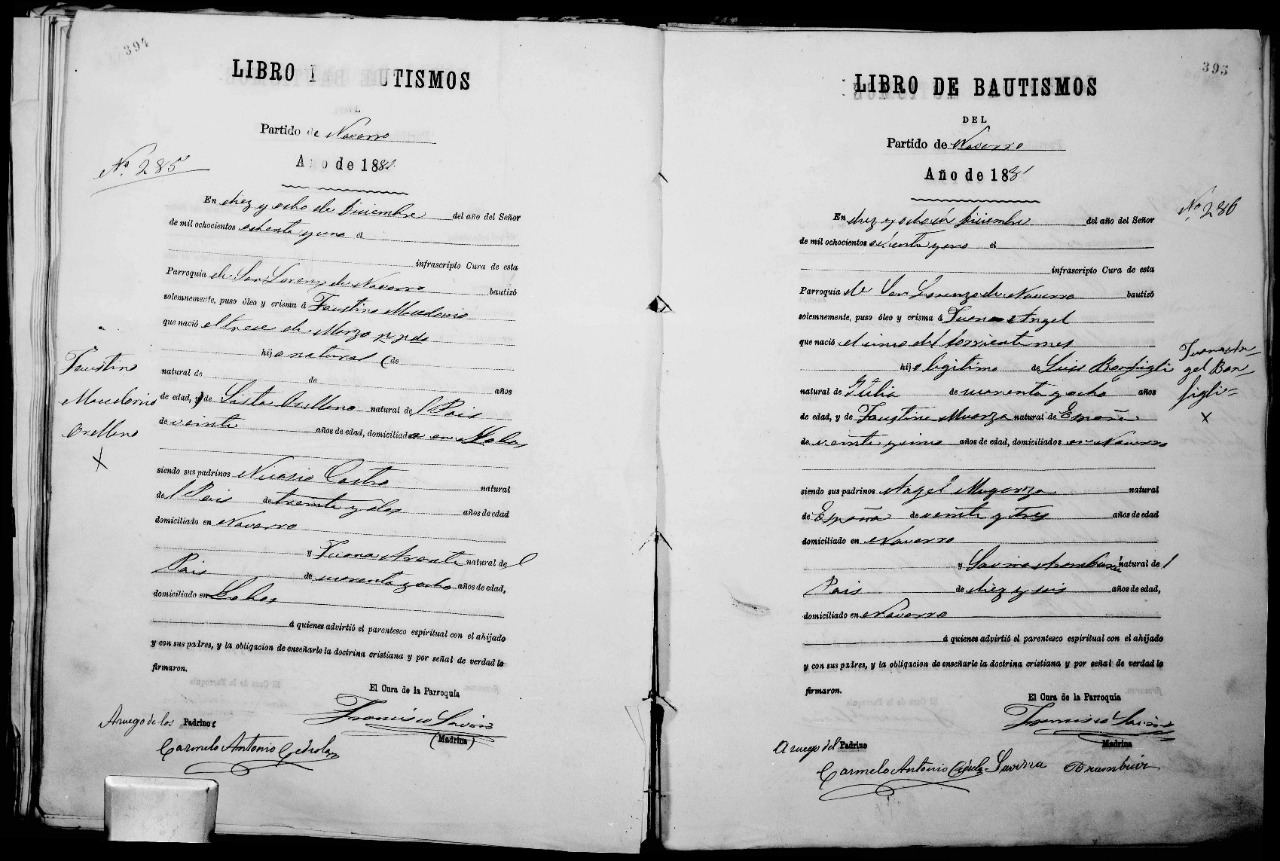 394
LIBRO I UTISMOS
Partido de Navarro
Nº 285
Año de 1881
En diez y ocho de Diciembre del año del Señor
de mil ochocientos ochenta y uno el
infrascripto Cura de esta
Parroquia de San Lorenzo de Navarro bautizó
solemnemente, puso óleo y crisma á Faustino Macedonio
que nació el trece de Marzo ppdo
hijo natural (de
natural de de años
Faustino
Macedonio
Orellano
X
de edad, y de Orellano natural del Pais
de veinte años de edad, domiciliada en Lobos
siendo sus padrinos Nicasio Castro natural
del Pais de treinta y dos años de edad
domiciliado en Navarro
y Juana natural del
Pais de cuarenta y ocho años de edad,
domiciliado en Lobos
á quienes advirtió el parentesco espiritual con el ahijado
y con sus padres, y la obligacion de enseñarle la doctrina cristiana y por señal de verdad lo
firmaron.
El Cura de la Parroquia
Francisco
A ruego de los Padrinos
(Madrina)
Carmelo Antonio
395
LIBRO DE BAUTISMOS
DEL
Partido de Navarro
Año de 1881
Nº 286
En diez y ocho de Diciembre del año del Señor
de mil ochocientos ochenta y uno el
infrascripto Cura de esta
Parroquia de San Lorenzo de Navarro bautizó
solemnemente, puso óleo y crisma á Juan Angel
que nació el cinco del corriente mes
hijo legitimo de Luis Bonfigli
natural de Italia de cuarenta y ocho años
de edad, y de Faustina natural de España
de veinte y cinco años de edad, domiciliados en Navarro
Juan An-
gel Bon
figli
X
siendo sus padrinos Angel natural
de España de veinte y tres años de edad
domiciliado en Navarro
y natural del
Pais de diez y seis años de edad,
domiciliado en Navarro
á quienes advirtió el parentesco espiritual con el ahijado
y con sus padres, y la obligacion de enseñarle la doctrina cristiana y por señal de verdad lo
firmaron.
El Cura de la Parroquia
Francisco
A ruego del Padrino
Madrina
Carmelo Antonio